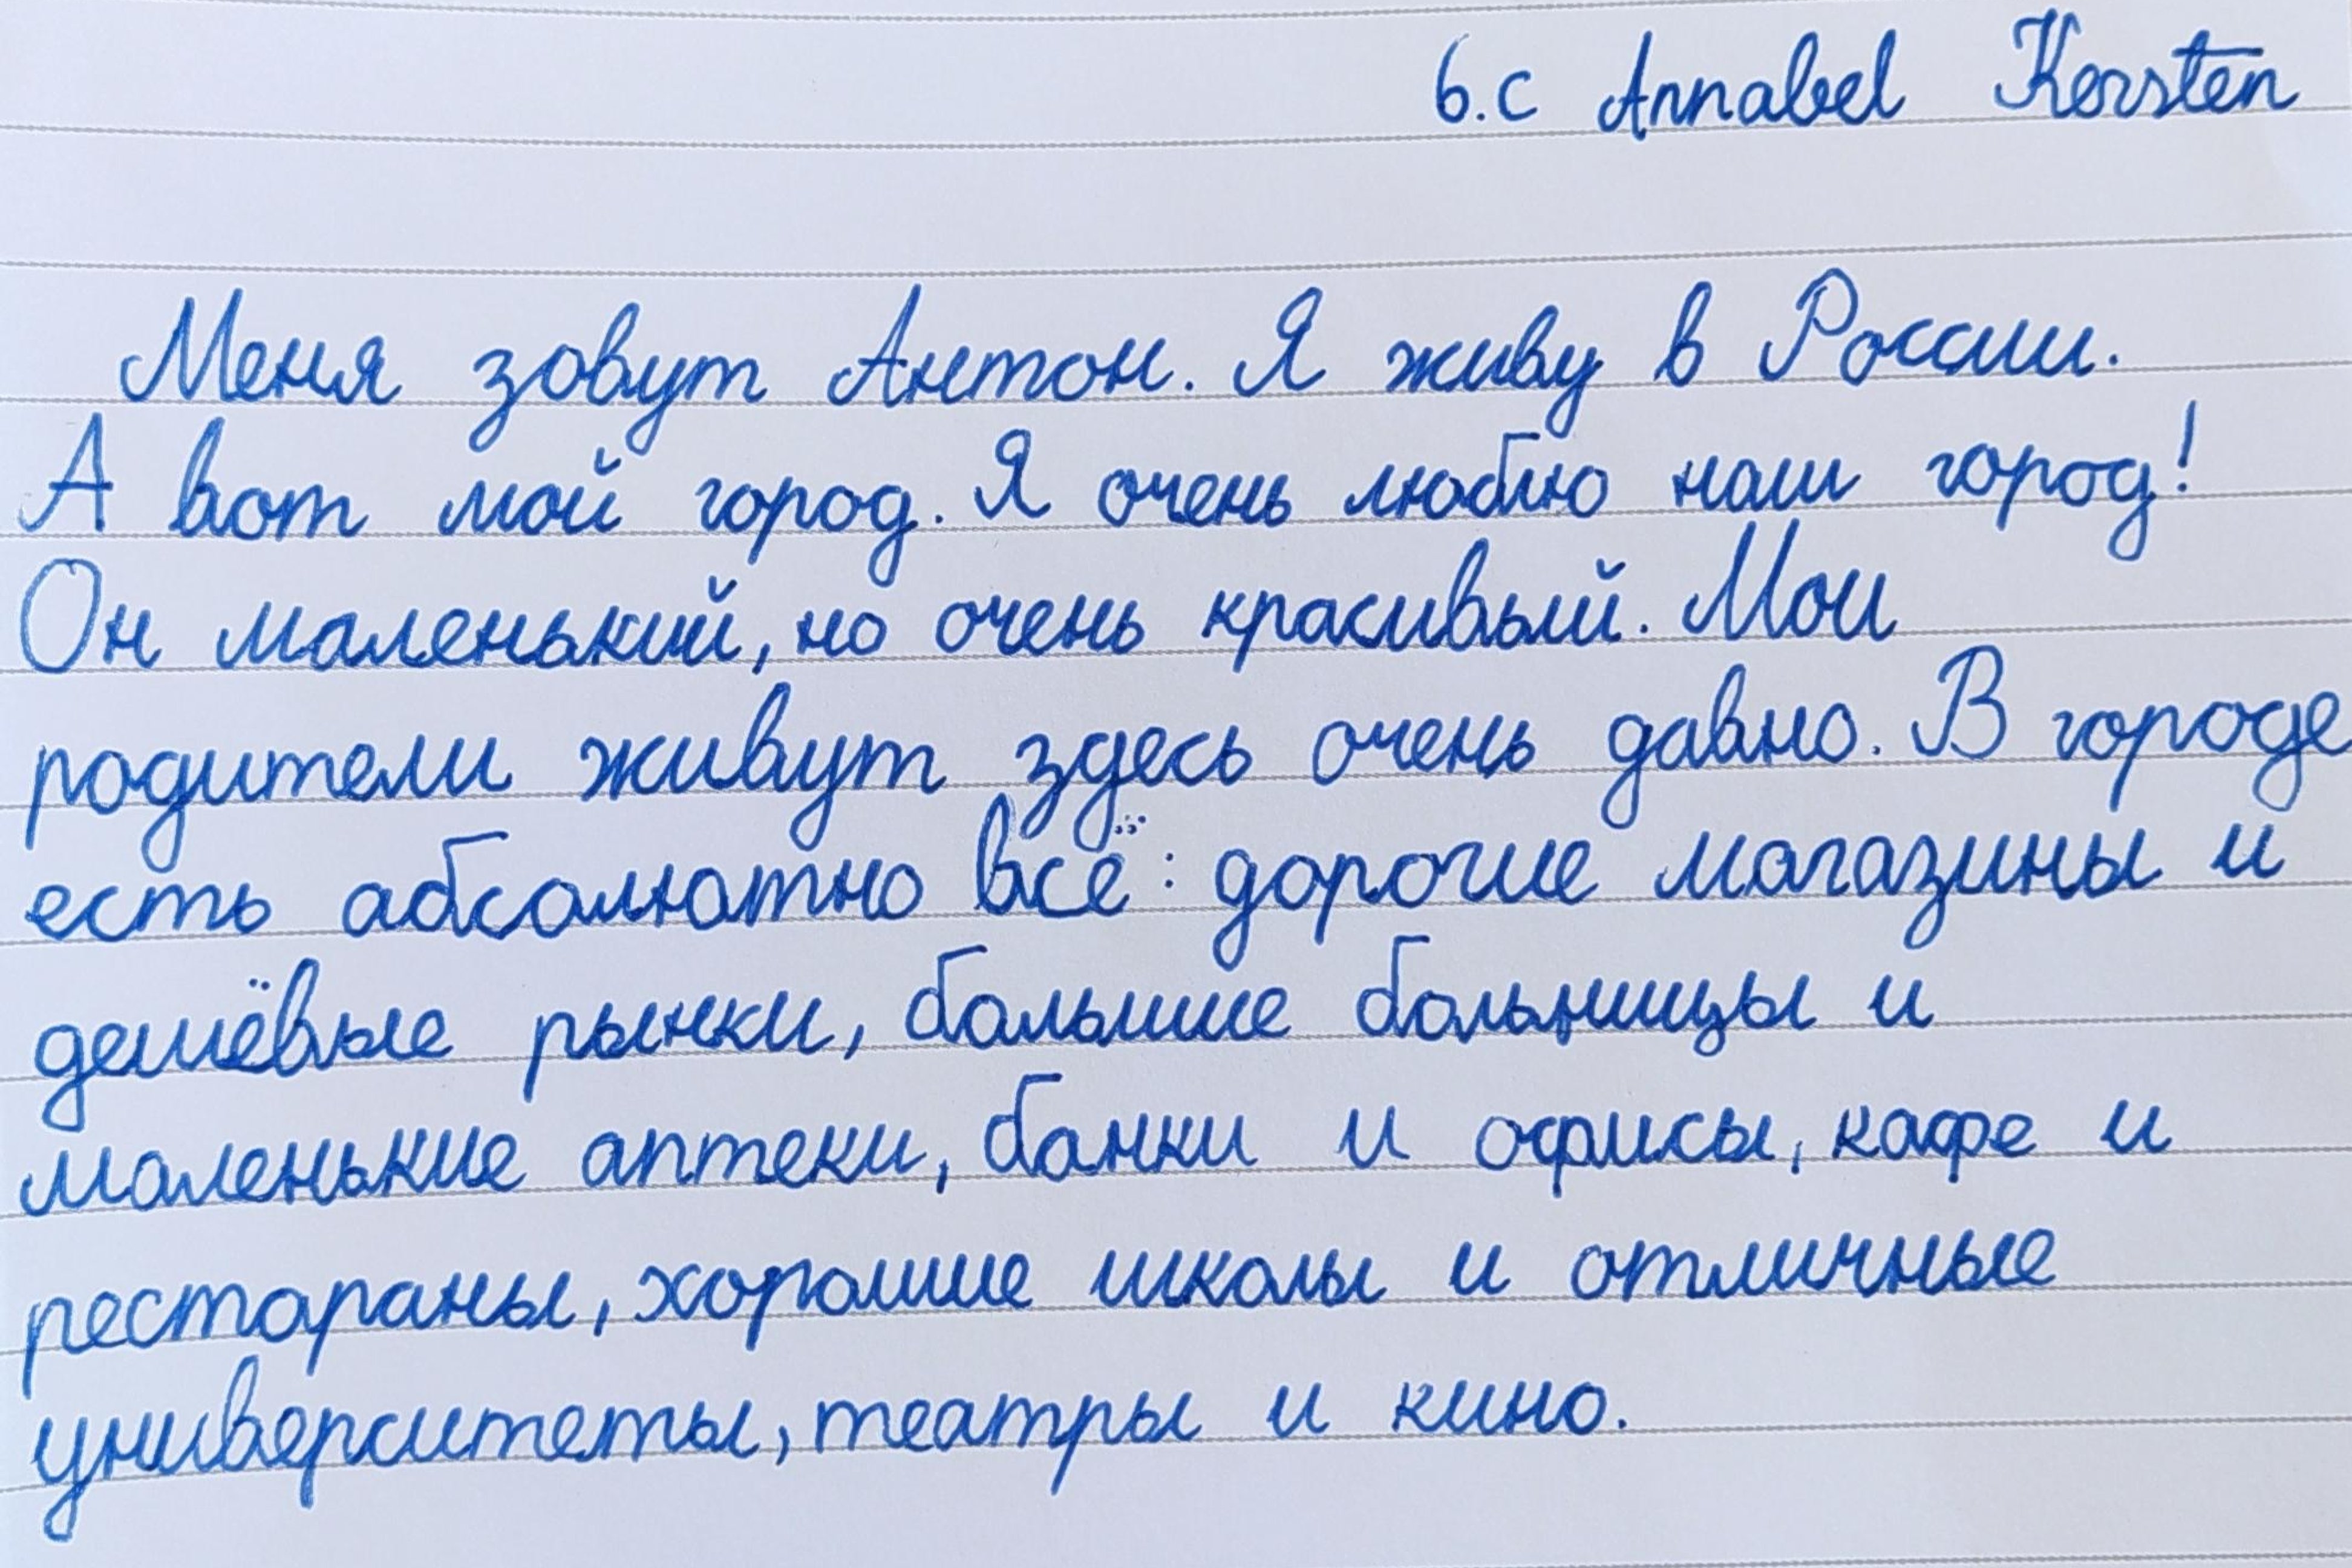 6.c Annabel Kersten
Меня зовут Антон. Я живу в России.
А вот мой город. Я очень люблю наш город!
Он маленький, но очень красивый. Мои
родители живут здесь очень давно. В городе
есть абсолютно всё: дорогие магазины и
дешёвые рынки, большие больницы и
маленькие аптеки, банки и офисы, кафе и
рестораны, хорошие школы и отличные
университеты, театры и кино.